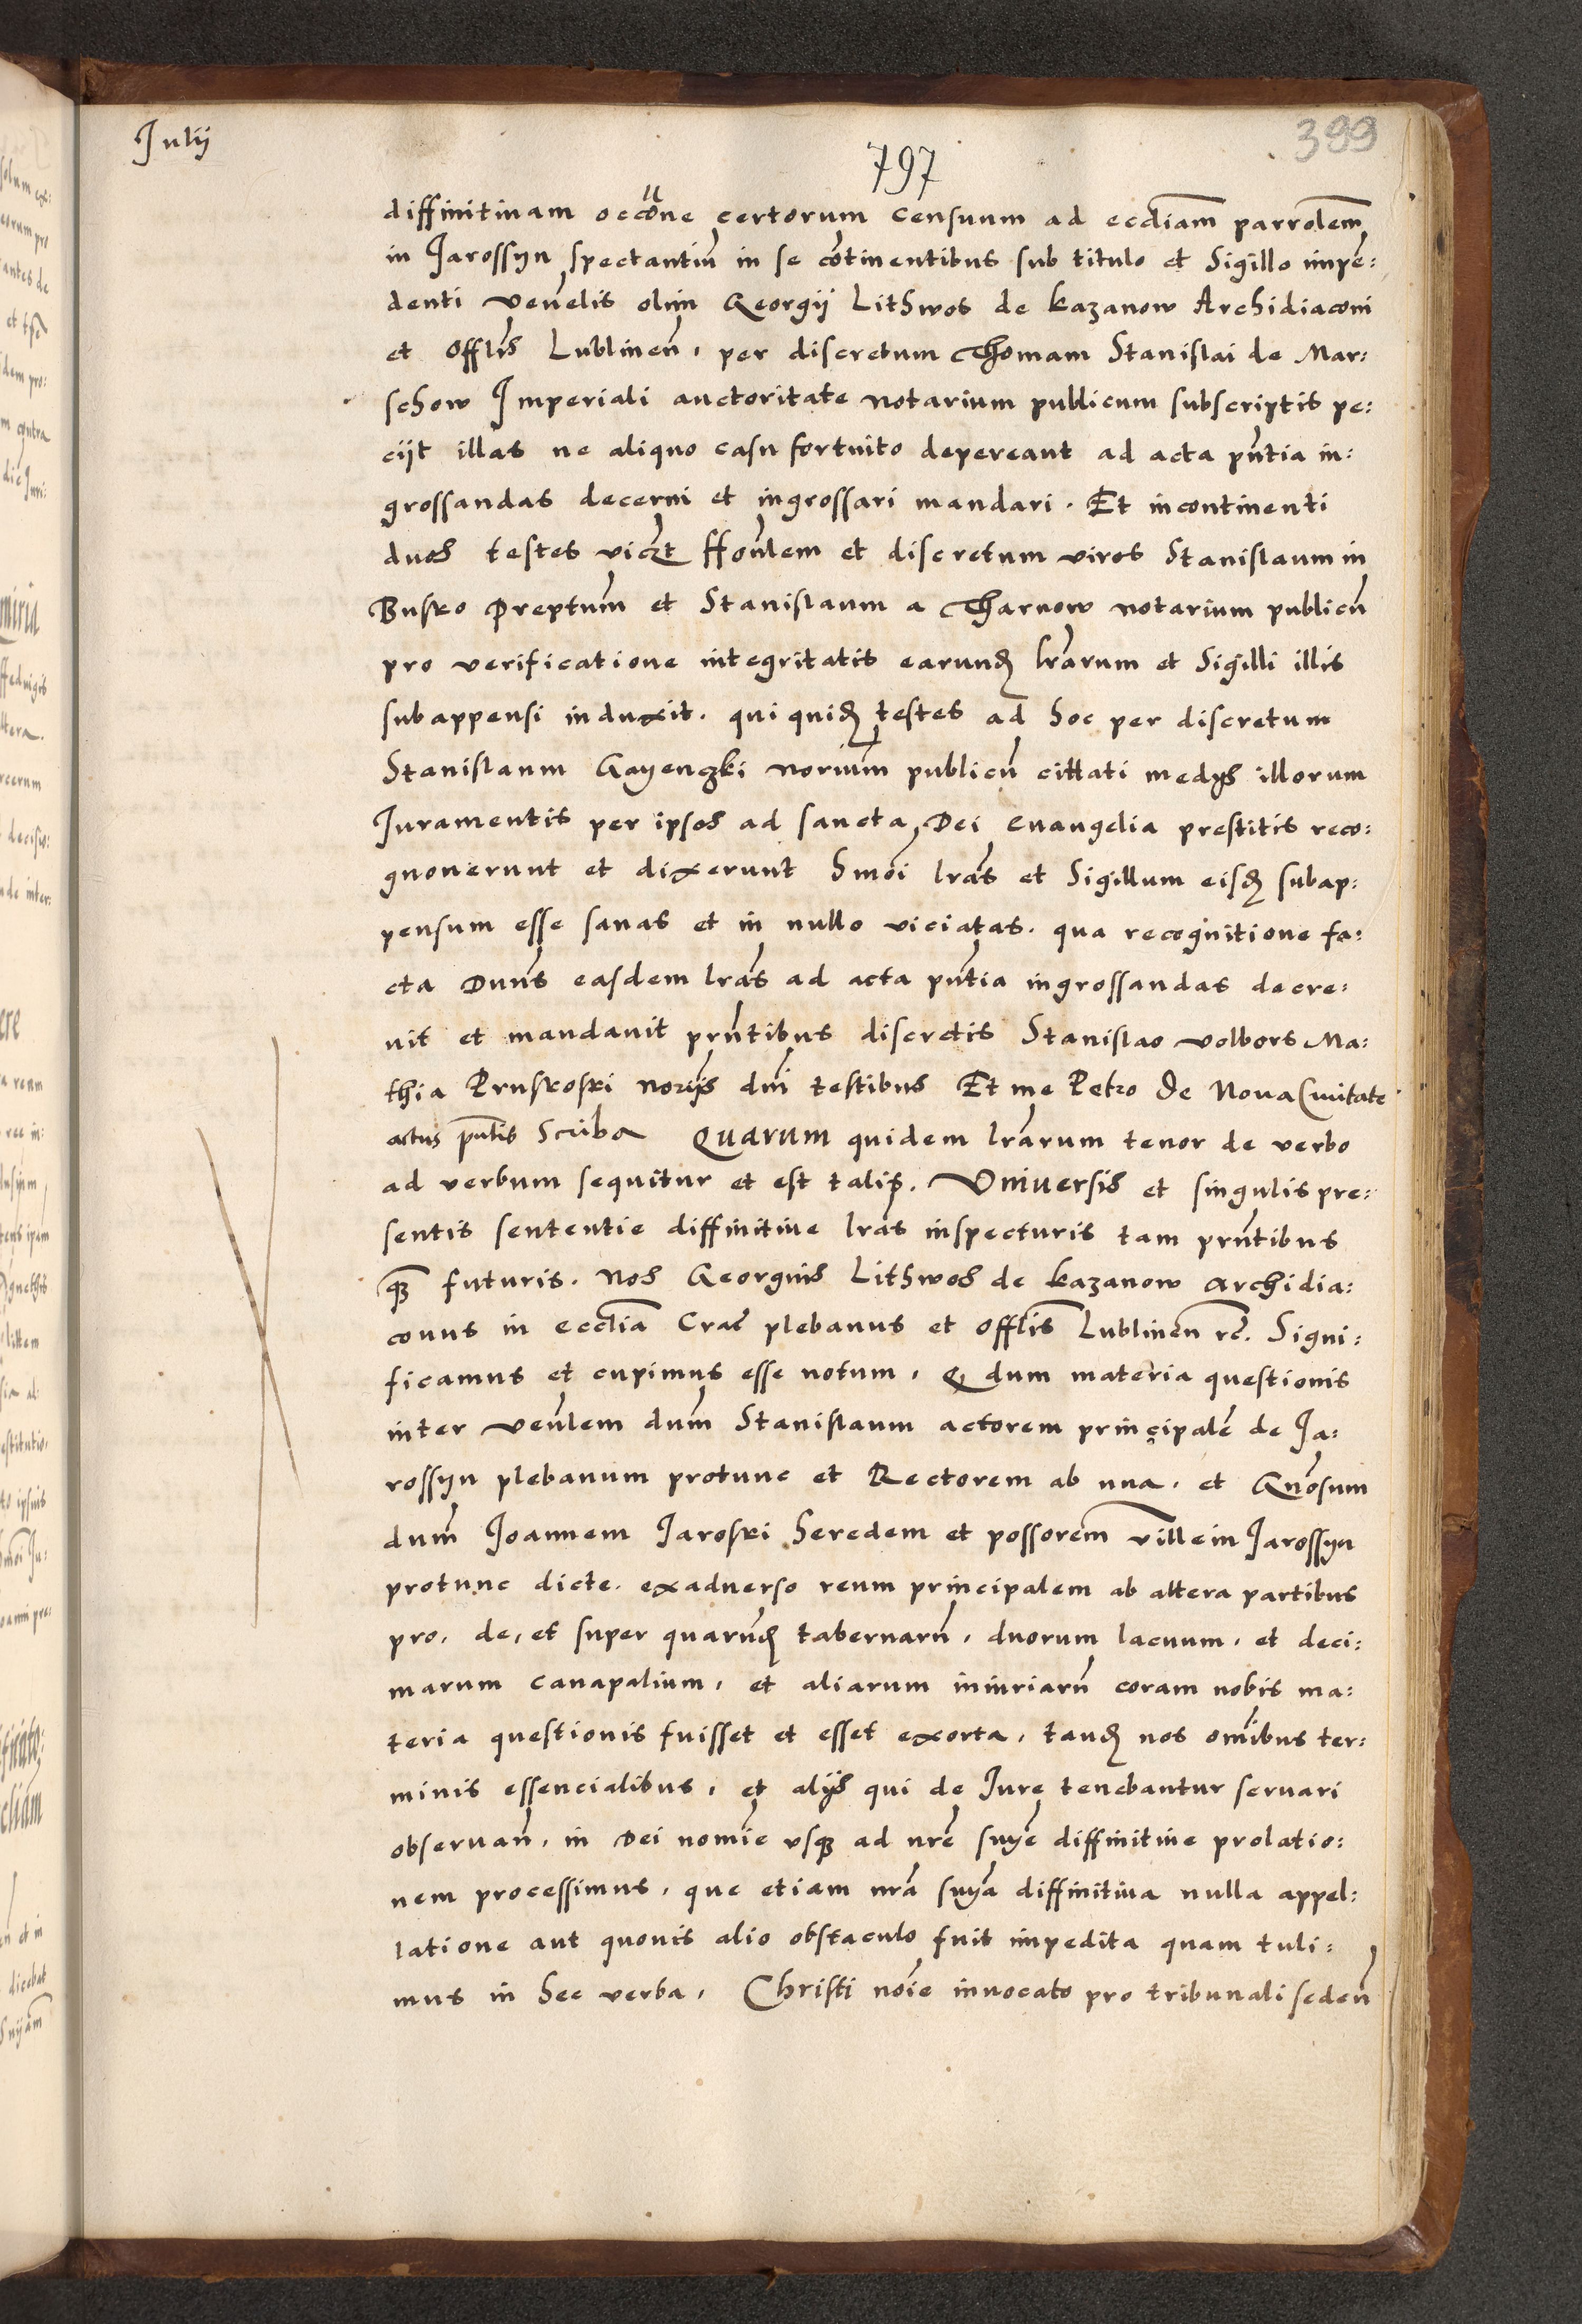 Julij
399
797
diffinitiuam occõne certorum censuum ad eccliam parrolem
in Jarossyn spectantiũ in se cõtinentibus sub titulo et Sigillo impẽ:
denti venelis olim Georgij Lithwos de Kazanow Archidiaconi
et Offlis Lublineñ, per discretum Thomam Stanislai de Mar:
schow Imperiali auctoritate notarium publicum subscriptis pe:
cijt illas ne aliquo casu fortuito depereant ad acta pñtia in:
grossandas decerni et ingrossari mandari. Et incontinenti
duos testes viczt Honlem et discretum viros Stanislaum in
Busko Preptum et Stanislaum a Tharnow notarium publicũ
pro verificatione integritatis earundẽ lrarum et Sigilli illis
subappensi induxit. qui quidẽ testes ad hoc per discretum
Stanislaum Gayenczki norium publicũ cittati medys illorum
Juramentis per ipsos ad sancta Dei Euangelia prestitis reco:
gnouerunt et dixerunt hmõi lras et Sigillum eisdẽ subap:
pensum esse sanas et in nullo viciatas. qua recognitione fa:
cta Dnus easdem lras ad acta pñtia ingrossandas decre:
uit et mandauit prñtibus discretis Stanislao Volbors Ma:
thia Pruskoski norijs dni testibus Et me Petro de Noua Ciuitate
actus pñtis Scriba Quarum quidem lrarum tenor de verbo
ad verbum sequitur et est talis. Vniuersis et singulis pre:
sentis sententie diffinitiue lras inspecturis tam prñtibus
q̃ futuris. Nos Georgius Lithwos de Kazanow Archidia:
conus in ecclia Crac̃ plebanus et Offlis Lublineñ rc̃. Signi:
ficamus et cupimus esse notum, Q dum materia questionis
inter venlem dum Stanislaum actorem principalẽ de Ja:
rossyn plebanum protunc et Rectorem ab una, et Gnosum
dum Joannem Jaroski heredem et possorem ville in Jarossyn
protunc dicte. exaduerso reum principalem ab altera partibus
pro, de, et super quarundẽ tabernarũ, duorum lacuum, et deci:
marum canapalium, et aliarum iniuriarũ coram nobis ma:
teria questionis fuisset et esset exorta, tandẽ nos omibus ter:
minis essencialibus, et alijs qui de Jure tenebantur seruari
obseruañ, in Dei nomie vsq̃ ad nrẽ snye diffinitiue prolatio:
nem processimus, que etiam nrã snya diffinitiua nulla appel:
latione aut quouis alio obstaculo fuit impedita quam tuli:
mus in hec verba, Christi nõie inuocato pro tribunali sedeñ